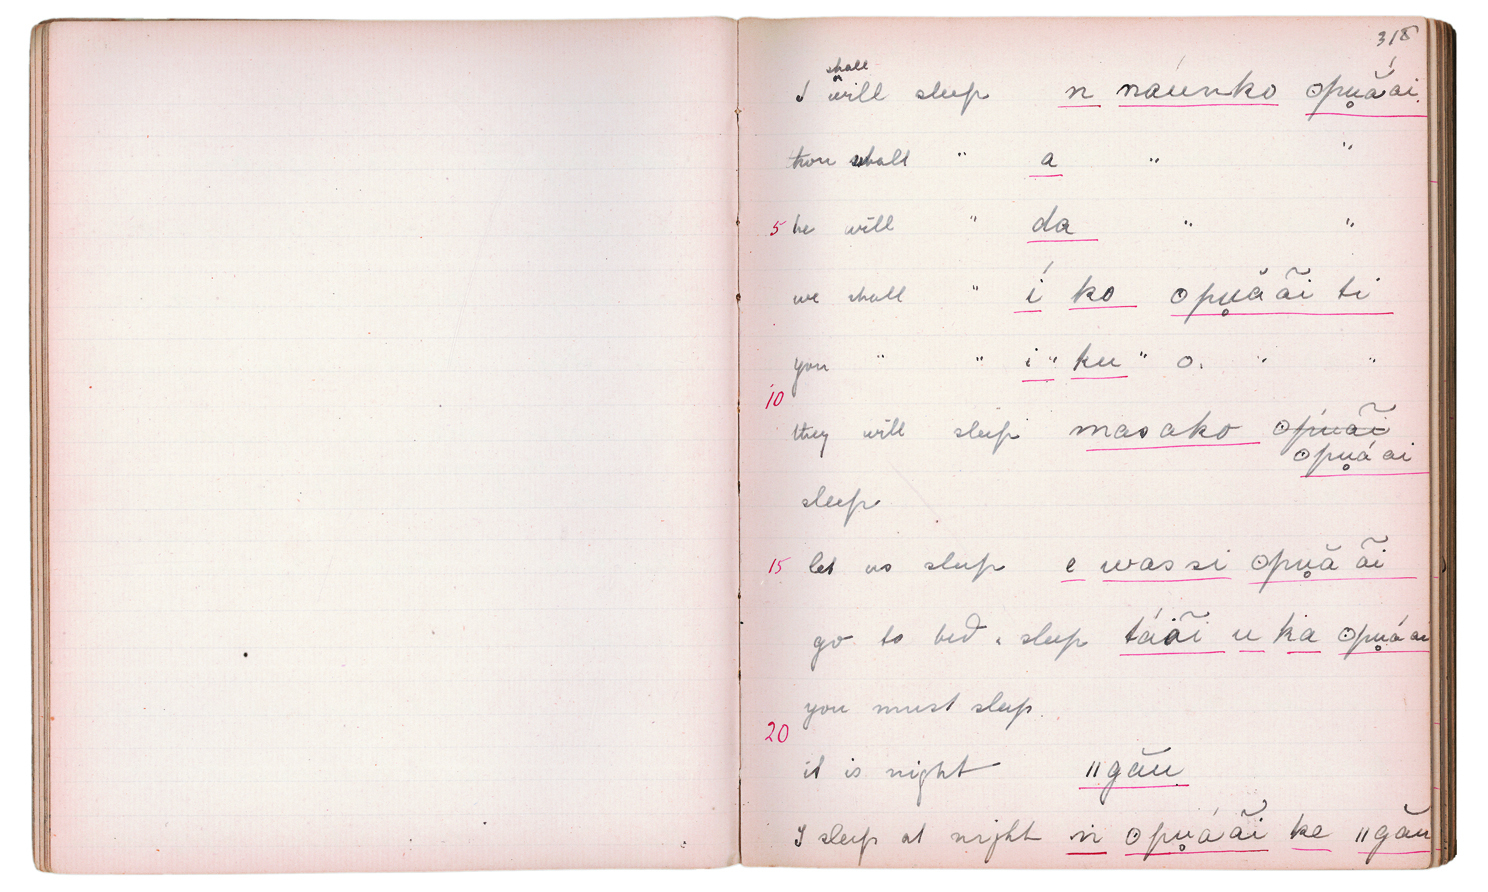 318
shall
I will sleep n náunko ʘpu̥ắái
thou shalt " a " "
5 he will " da " "
we shall " í ko ʘpu̥ă ãi ti
you " " i " ku " ʘ. " "
10
they will sleep masako ʘpuãi
ʘpu̥á ai
sleep
15 let us sleep e wassi ʘpu̥ă ãi
go to bed & sleep táãi u ka ʘpu̥á ai
you must sleep
20
it is night ǁgău
I sleep at night ń ʘpu̥áãi ke ǁgău